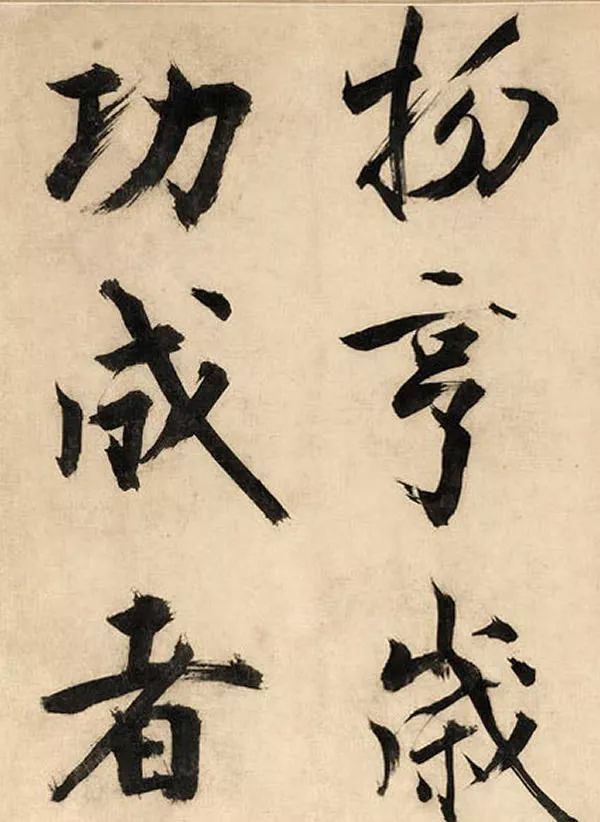 物亨歲
功成者